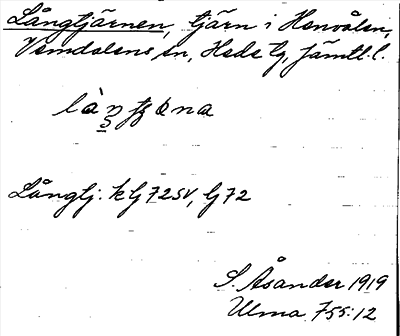 Långtjärnen, tjärn i Henvålen,
Vemdalens sn, Hede tg, Jämtl. l.
Långtj. k lj 72 SV, lj 72
S. Åsander 1919
Ulma 755:12